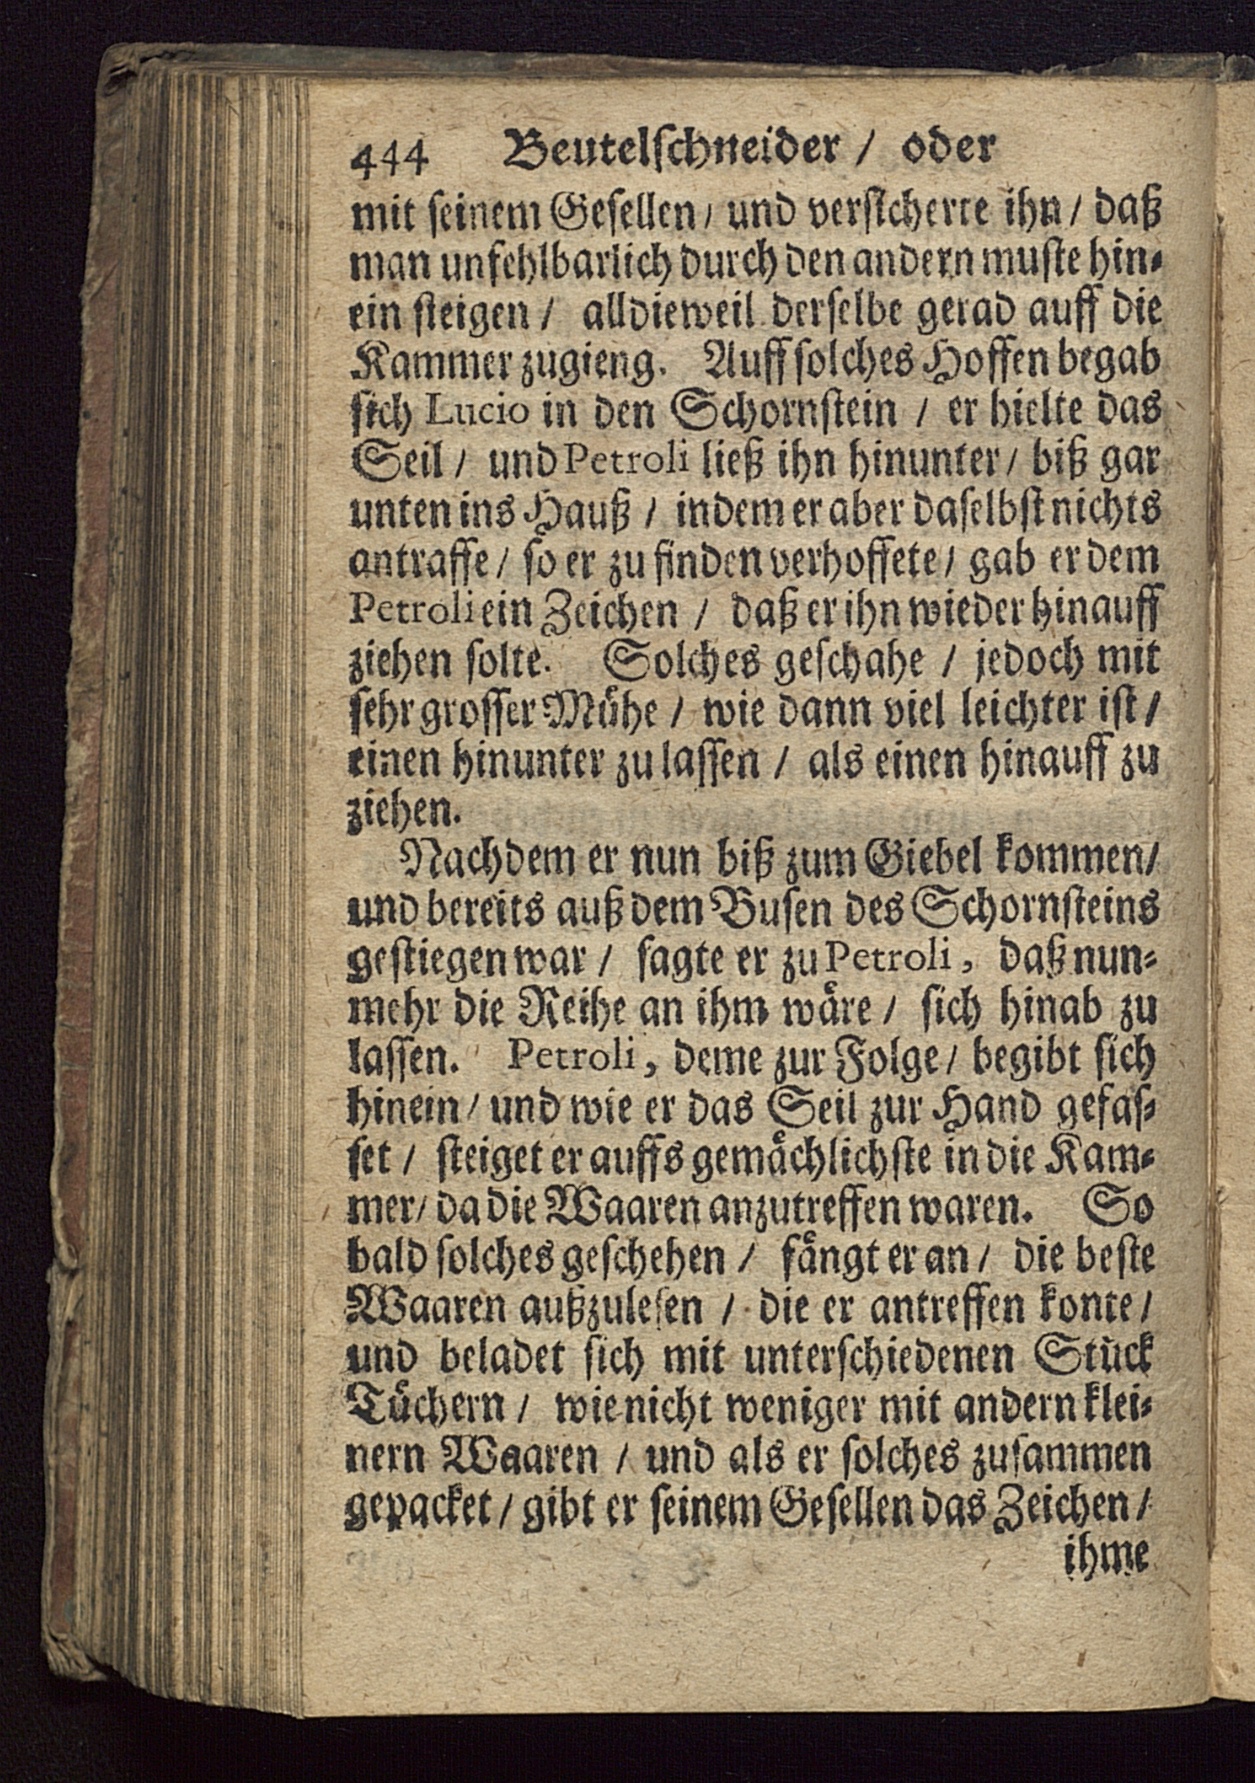 444 Beutelschneider / oder
mit seinem Gesellen / und versicherte ihn / daß
man unfehlbarlich durch den andern muste hin-
ein steigen / alldieweil derselbe gerad auff die
Kammer zugieng. Auff solches Hoffen begab
sich Lucio in den Schornstein / er hielte das
Seil / und Petroli ließ ihn hinunter / biß gar
unten ins Hauß / indem er aber daselbst nichts
antraffe / so er zu finden verhoffete / gab er dem
Petroli ein Zeichen / daß er ihn wieder hinauff
ziehen solte. Solches geschahe / jedoch mit
sehr grosser Mühe / wie dann viel leichter ist /
einen hinunter zu lassen / als einen hinauff zu
ziehen.
Nachdem er nun biß zum Giebel kommen /
und bereits auß dem Busen des Schornsteins
gestiegen war / sagte er zu Petroli, daß nun-
mehr die Reihe an ihm wäre / sich hinab zu
lassen. Petroli, deme zur Folge / begibt sich
hinein / und wie er das Seil zur Hand gefas-
set / steiget er auffs gemächlichste in die Kam-
mer / da die Waaren anzutreffen waren. So
bald solches geschehen / fängt er an / die beste
Waaren außzulesen / die er antreffen konte /
und beladet sich mit unterschiedenen Stück
Tüchern / wie nicht weniger mit andern klei-
nern Waaren / und als er solches zusammen
gepacket / gibt er seinem Gesellen das Zeichen /
ihme